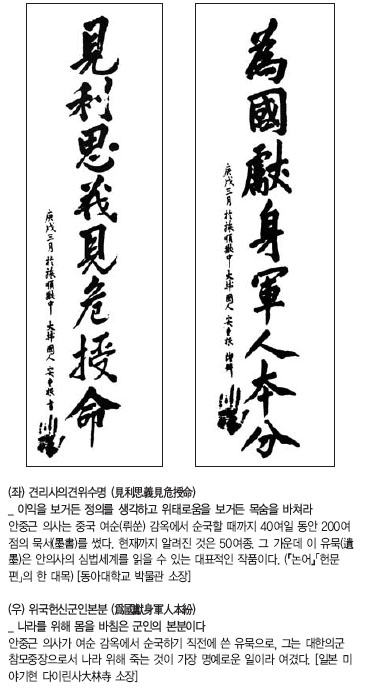 見利思義見危授命
庚戌三月 於旅順獄中 大韓國人 安重根 書
為國獻身軍人本分
庚戌三月 於旅順獄中 大韓國人 安重根 謹拜
(좌) 견리사의견위수명 (見利思義見危授命)
_ 이익을 보거든 정의를 생각하고 위태로움을 보거든 목숨을 바쳐라
안중근 의사는 중국 여순(뤼쑨) 감옥에서 순국할 때까지 40여일 동안 200여
점의 묵서(墨書)를 썼다. 현재까지 알려진 것은 50여종. 그 가운데 이 유묵(遺
墨)은 안의사의 심법세계를 읽을 수 있는 대표적인 작품이다. (『논어』「헌문
편」의 한 대목) [동아대학교 박물관 소장]
(우) 위국헌신군인본분 (爲國獻身軍人本紛)
_ 나라를 위해 몸을 바침은 군인의 본분이다
안중근 의사가 여순 감옥에서 순국하기 직전에 쓴 유묵으로, 그는 대한의군
참모중장으로서 나라 위해 죽는 것이 가장 명예로운 일이라 여겼다. [일본 미
야기현 다이린사大林寺 소장]